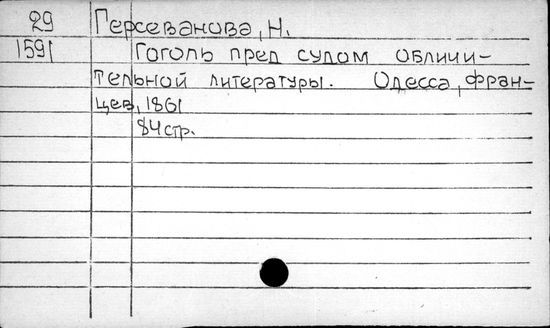 29 Герсеванова, Н.
1591 Гоголь пред судом обличи-
тельной литературы. Одесса, Фран-
цев, 1861
84 стр.